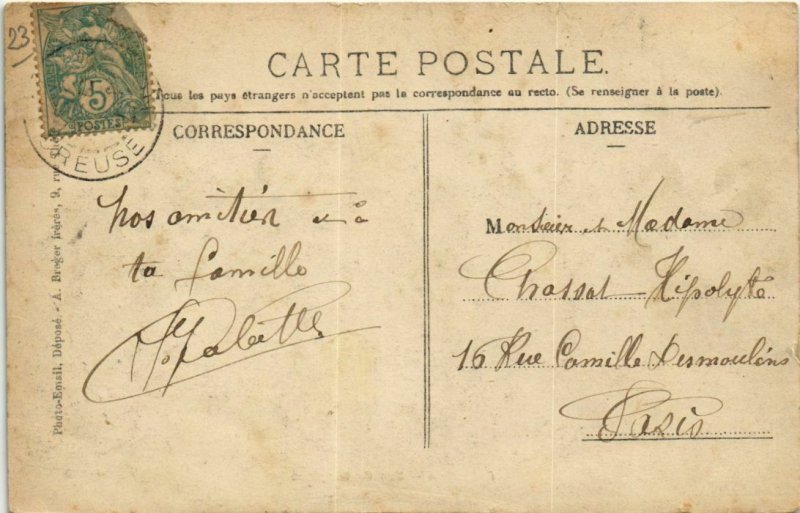 23
CARTE POSTALE.
Tous les pays étrangers n'acceptent pas la correspondance au recto. (Se renseigner à la poste).
5c
POSTES
CREUSE
CORRESPONDANCE
ADRESSE
Photo-Email, Déposé. - A. Breger frères, 9, ru
nos amitiér à
ta familla
Monsieur et Madame
Chassat Hipolyte
16 Rue Camille Desmoulins
Paris